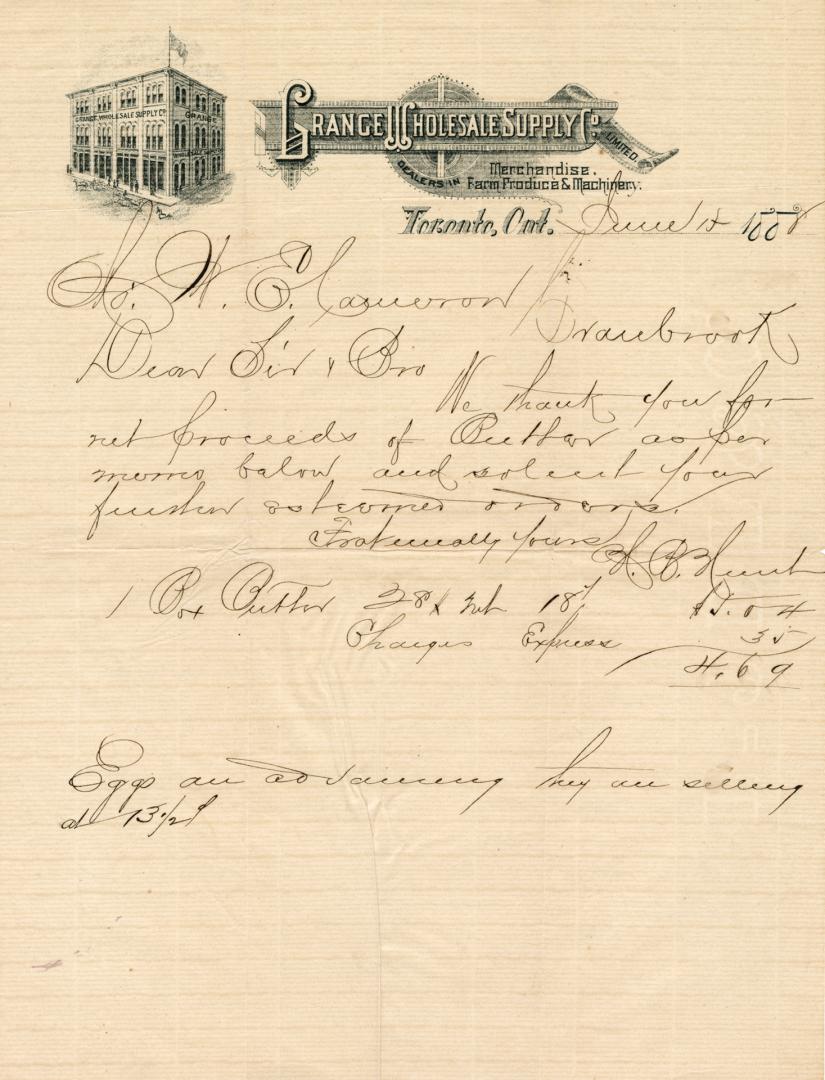 GRANGE WHOLESALE SUPPLY Co
GRANGE
GRANGE WHOLESALE SUPPLY Co.
LIMITED.
DEALERS IN
Merchandise,
Farm Produce & Machinery.
Toronto, Ont. June 14 1888
W. E. Cameron
Cranbrook
Dear Sir & Bro
We thank you for
net proceeds of Butter as per
memo below and solicit your
further esteemed orders.
Fraternally yours
H. B. Hunt
1 Box Butter 28# net 18¢ $5.04
Charges Express 35
4.69
Eggs are advancing they are selling
at 13 1/2¢